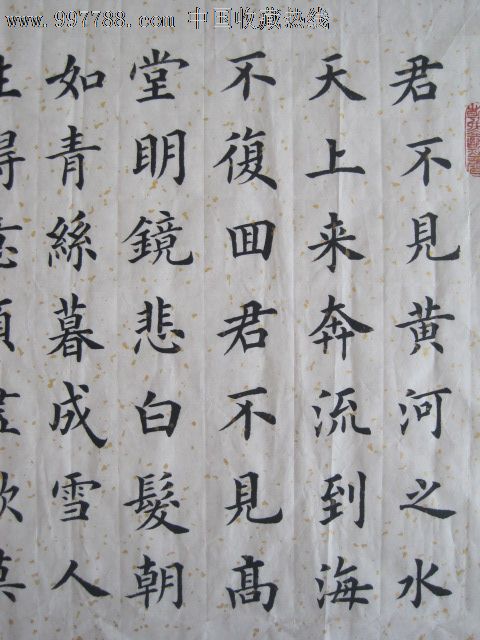 www.997788.com 中国收藏热线
君不見黄河之水
天上来奔流到海
不復回君不見髙
堂明鏡悲白髮朝
如青絲暮成雪人